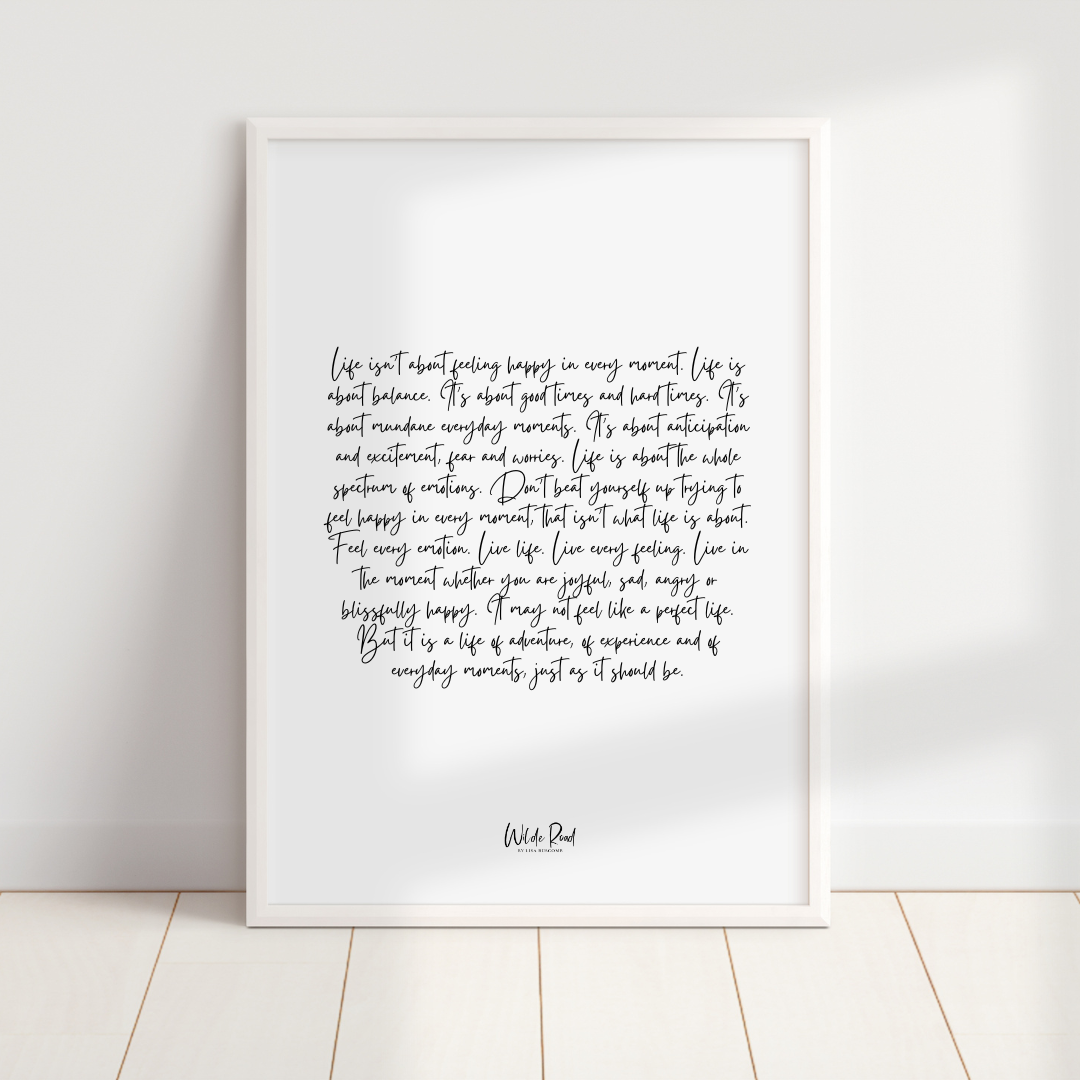 Life isn't about feeling happy in every moment. Life is
about balance. It's about good times and hard times. It's
about mundane everyday moments. It's about anticipation
and excitement, fear and worries. Life is about the whole
spectrum of emotions. Don't beat yourself up trying to
feel happy in every moment, that isn't what life is about.
Feel every emotion. Live life. Live every feeling. Live in
the moment whether you are joyful, sad, angry or
blissfully happy. It may not feel like a perfect life.
But it is a life of adventure, of experience and of
everyday moments, just as it should be.
Wilde Road
BY LISA BUSCOMB